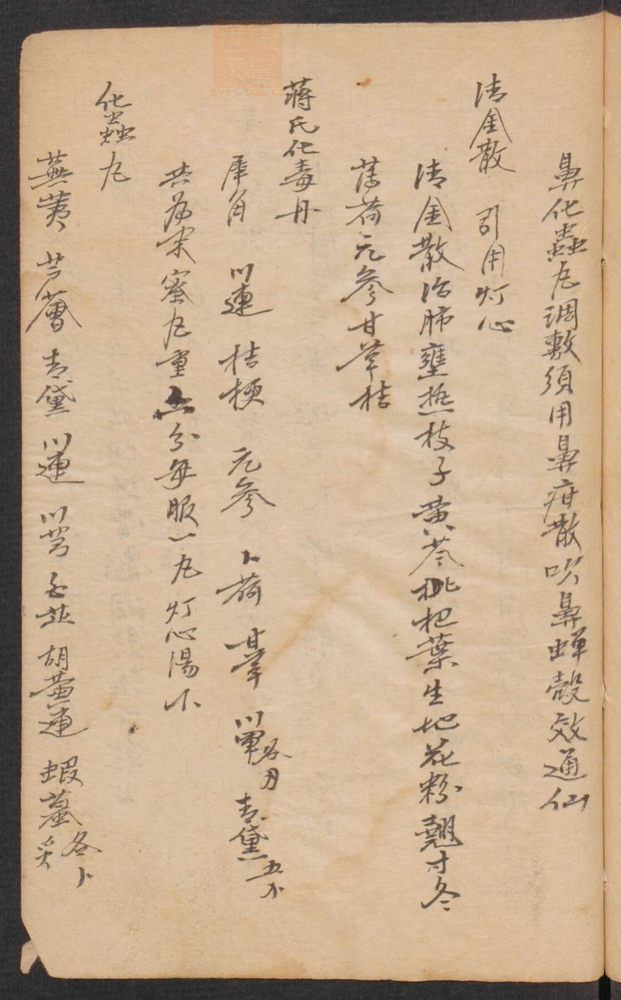 鼻化蟲尢調敷須用鼻疳散吹鼻蟬殼效通仙
清金散 引用灯心
清金散治肺壅热枝子黄芩枇杷葉生地花粉翹寸冬
薄荷元參甘草桔
蒋氏化毒丹
犀角 川連 桔梗 元參 卜荷 甘草 川軍各 青黛五
共為末蜜尢重六分每服一尢灯心湯下
化蟲尢
蕪荑 芦薈 青黛 川連 川芎 白芷 胡黄連 蝦蟇各